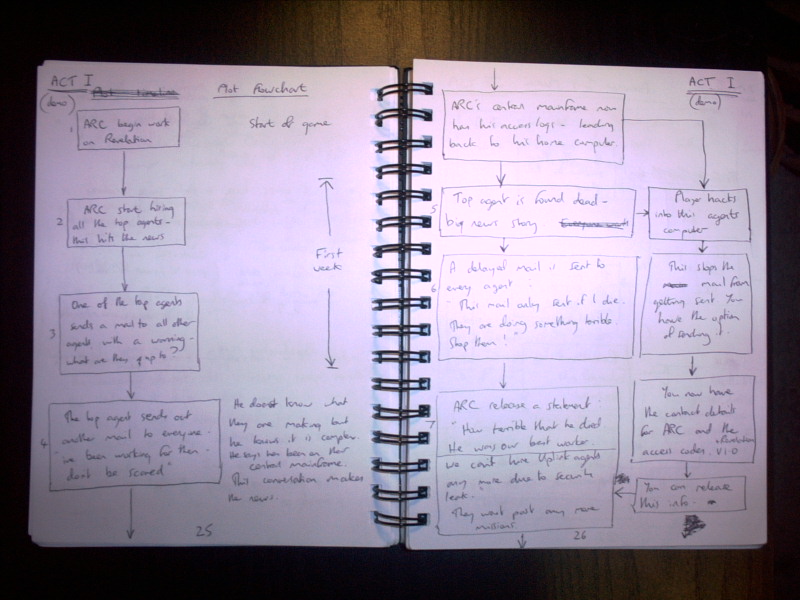 ACT I
(demo)
Plot timeline
Plot Flowchart
1
ARC begin work
on Revelation
Start of game
2
ARC start hiring
all the top agents -
this hits the news
First
week
3
One of the top agents
sends a mail to all other
agents with a warning -
what are they up to?
4
The top agent sends out
another mail to everyone.
been working for them.
don't be scared"
He doesnt know what
they are making but
he knows it is complex.
He says has been on their
central mainframe.
This conversation makes
the news.
25
ACT I
(demo)
ARC's central mainframe now
has his access logs - leading
back to his home computer.
5
Top agent is found dead -
big news story
Player hacks
into this agents
computer
6
A delayed mail is sent to
every agent.
"This mail only sent if I die.
They are doing something terrible.
Stop them!"
This stops the
mail from
getting sent. You
have the option
of sending it.
7
ARC release a statement.
"How terrible that he died
He was our best worker.
We cant have Uplink agents
any more due to security
leak.
They wont post any more
missions
You now have
the contact details
for ARC and the
access codes. Revelation
V1.0
You can release
this info.
26